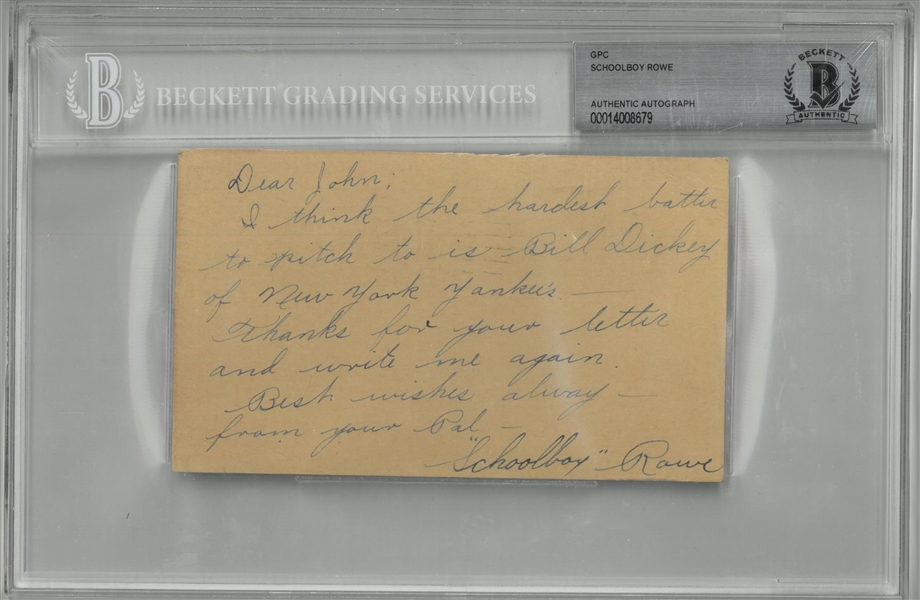 BECKETT GRADING SERVICES
GPC
SCHOOLBOY ROWE
AUTHENTIC AUTOGRAPH
00014008679
BECKETT
B
AUTHENTIC
B
Dear John;
I think the hardest batter
to pitch to is Bill Dickey
of New York Yankee's —
Thanks for your letter
and write me again.
Best wishes alway —
from your Pal —
"Schoolboy" Rowe